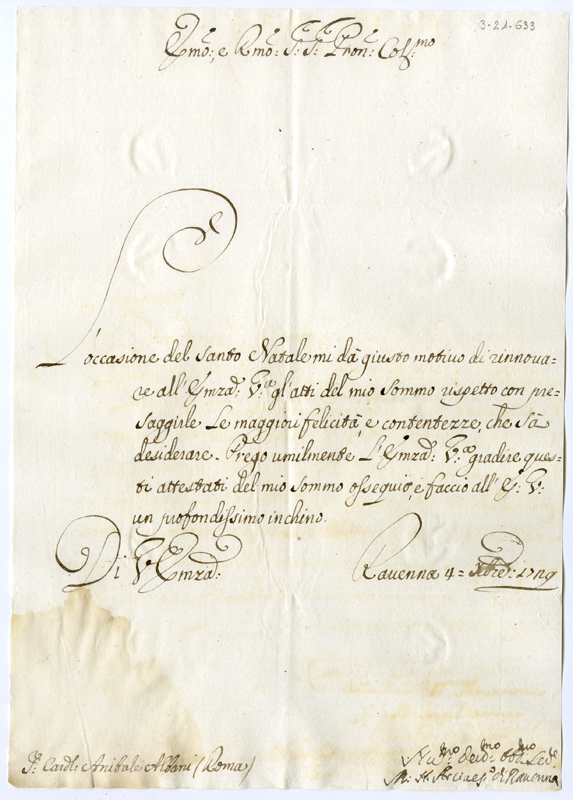 3-21-633
Emo:, e Rmo: S: S: Pron: Col:mo
L'occasione del Santo Natale mi dà giusto motivo di rinnova=
re all'Emza: V:ra gl'atti del mio sommo rispetto con pre=
saggirle Le maggiori felicità, e contentezze, che sà
desiderare. Prego umilmente L'Emza: V:ra gradire ques=
ti attestati del mio sommo ossequio, e faccio all' E: V:
un profondissimo inchino.
Di V: Emza:
Ravenna 4= Xbre: 1729
S: Cardl: Anibale Albani (Roma)
Arcives:o di Ravenna